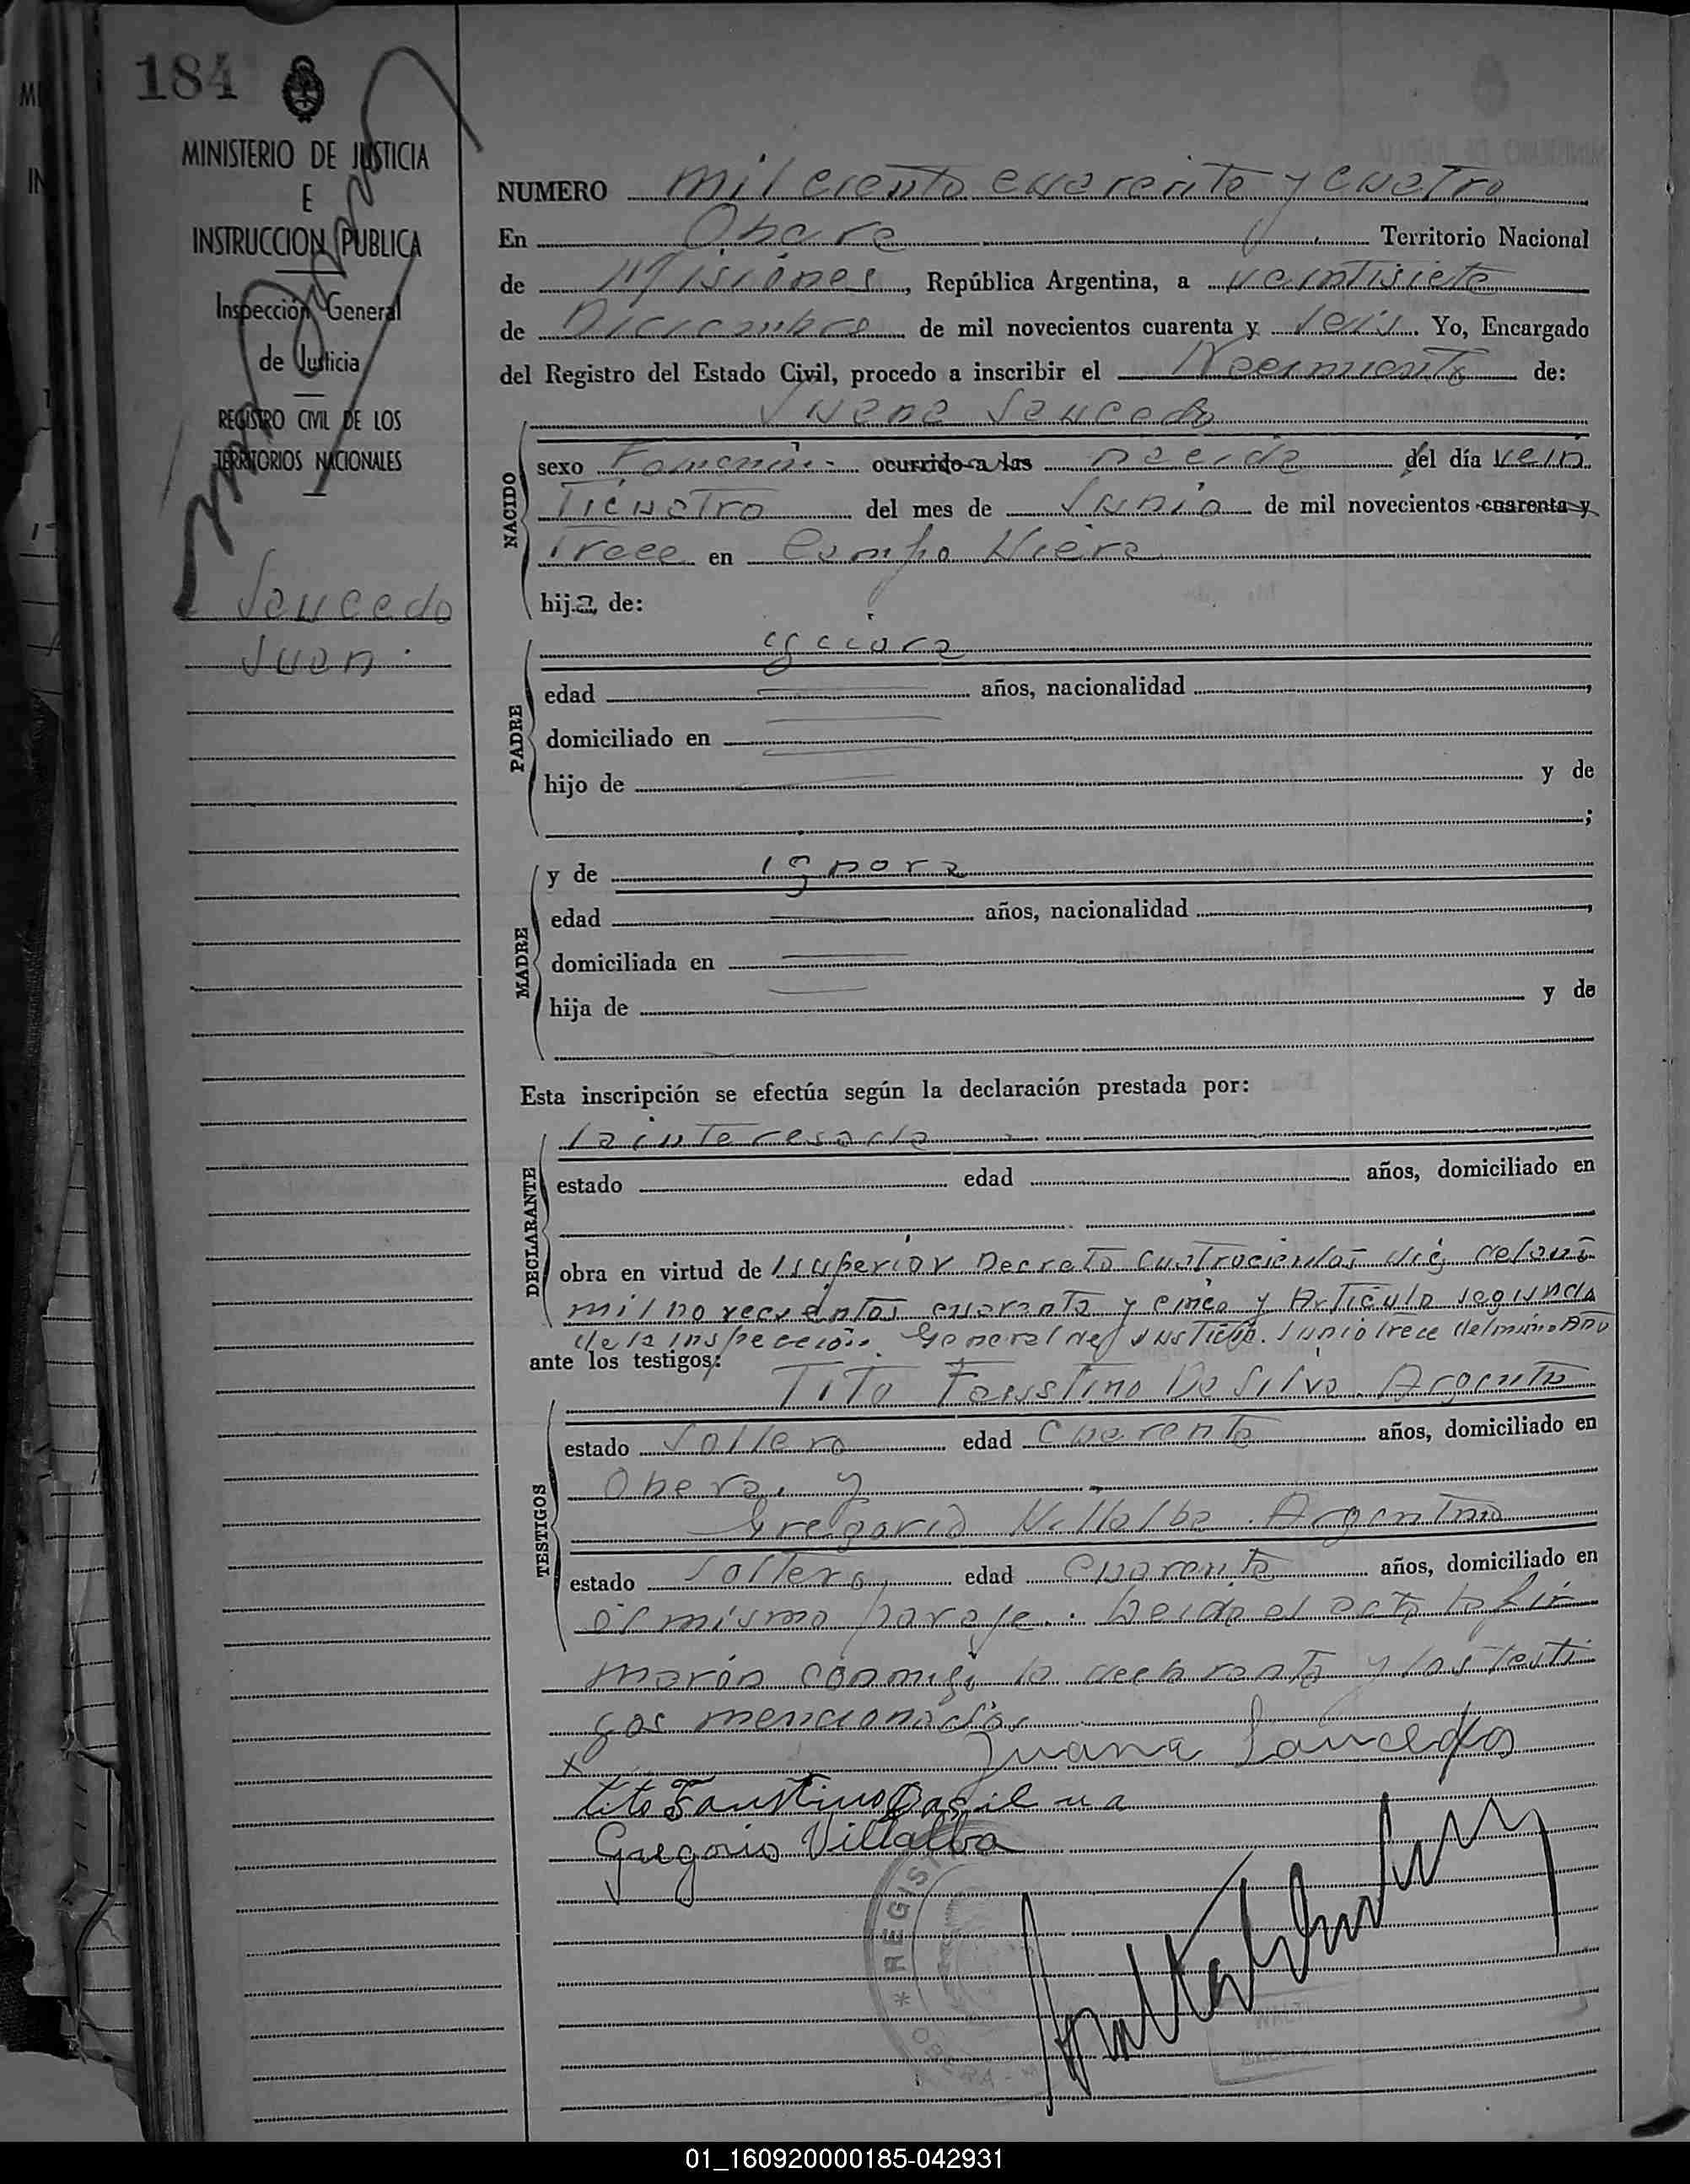 184
MINISTERIO DE JUSTICIA
E
INSTRUCCION PUBLICA
Inspección General
de Justicia
REGISTRO CIVIL DE LOS
TERRITORIOS NACIONALES
Saucedo
Juan.
NUMERO mil ciento cuarenta y cuatro
En Obera Territorio Nacional
de Misiones, República Argentina, a veintisiete
de Diciembre de mil novecientos cuarenta y seis. Yo, Encargado
del Registro del Estado Civil, procedo a inscribir el Nacimiento de:
NACIDO
Juana Saucedo
sexo Femenin- ocurrido a las nacida del día vein
ticuatro del mes de Junio de mil novecientos cuarenta y
trece en Campo Viera
hija de:
PADRE
edad años, nacionalidad ,
domiciliado en
hijo de y de
;
MADRE
y de ignora
edad años, nacionalidad ,
domiciliada en
hija de y de
Esta inscripción se efectúa según la declaración prestada por:
DECLARANTE
la interesada
estado edad años, domiciliado en
obra en virtud de l superior Decreto cuatrocientos del año
mil novecientos cuarenta y cinco y Articulo segundo
de la Inspección General de Justicia. Junio trece del mismo Año
ante los testigos:
TESTIGOS
Tito Faustino Da Silva. Argentino
estado Soltero edad Cuarenta años, domiciliado en
Obera. y
Gregorio Villalba. Argentino
estado Soltero edad Cuarenta años, domiciliado en
el mismo paraje. Leida el acta la fir
marón conmigo la declarante y los testi
gos mencionados
x Juana Saucedo
tito Faustino Dasilua
Gregorio Villalba
* REGIS
OBERA - M
WALT
Encar
01_160920000185-042931